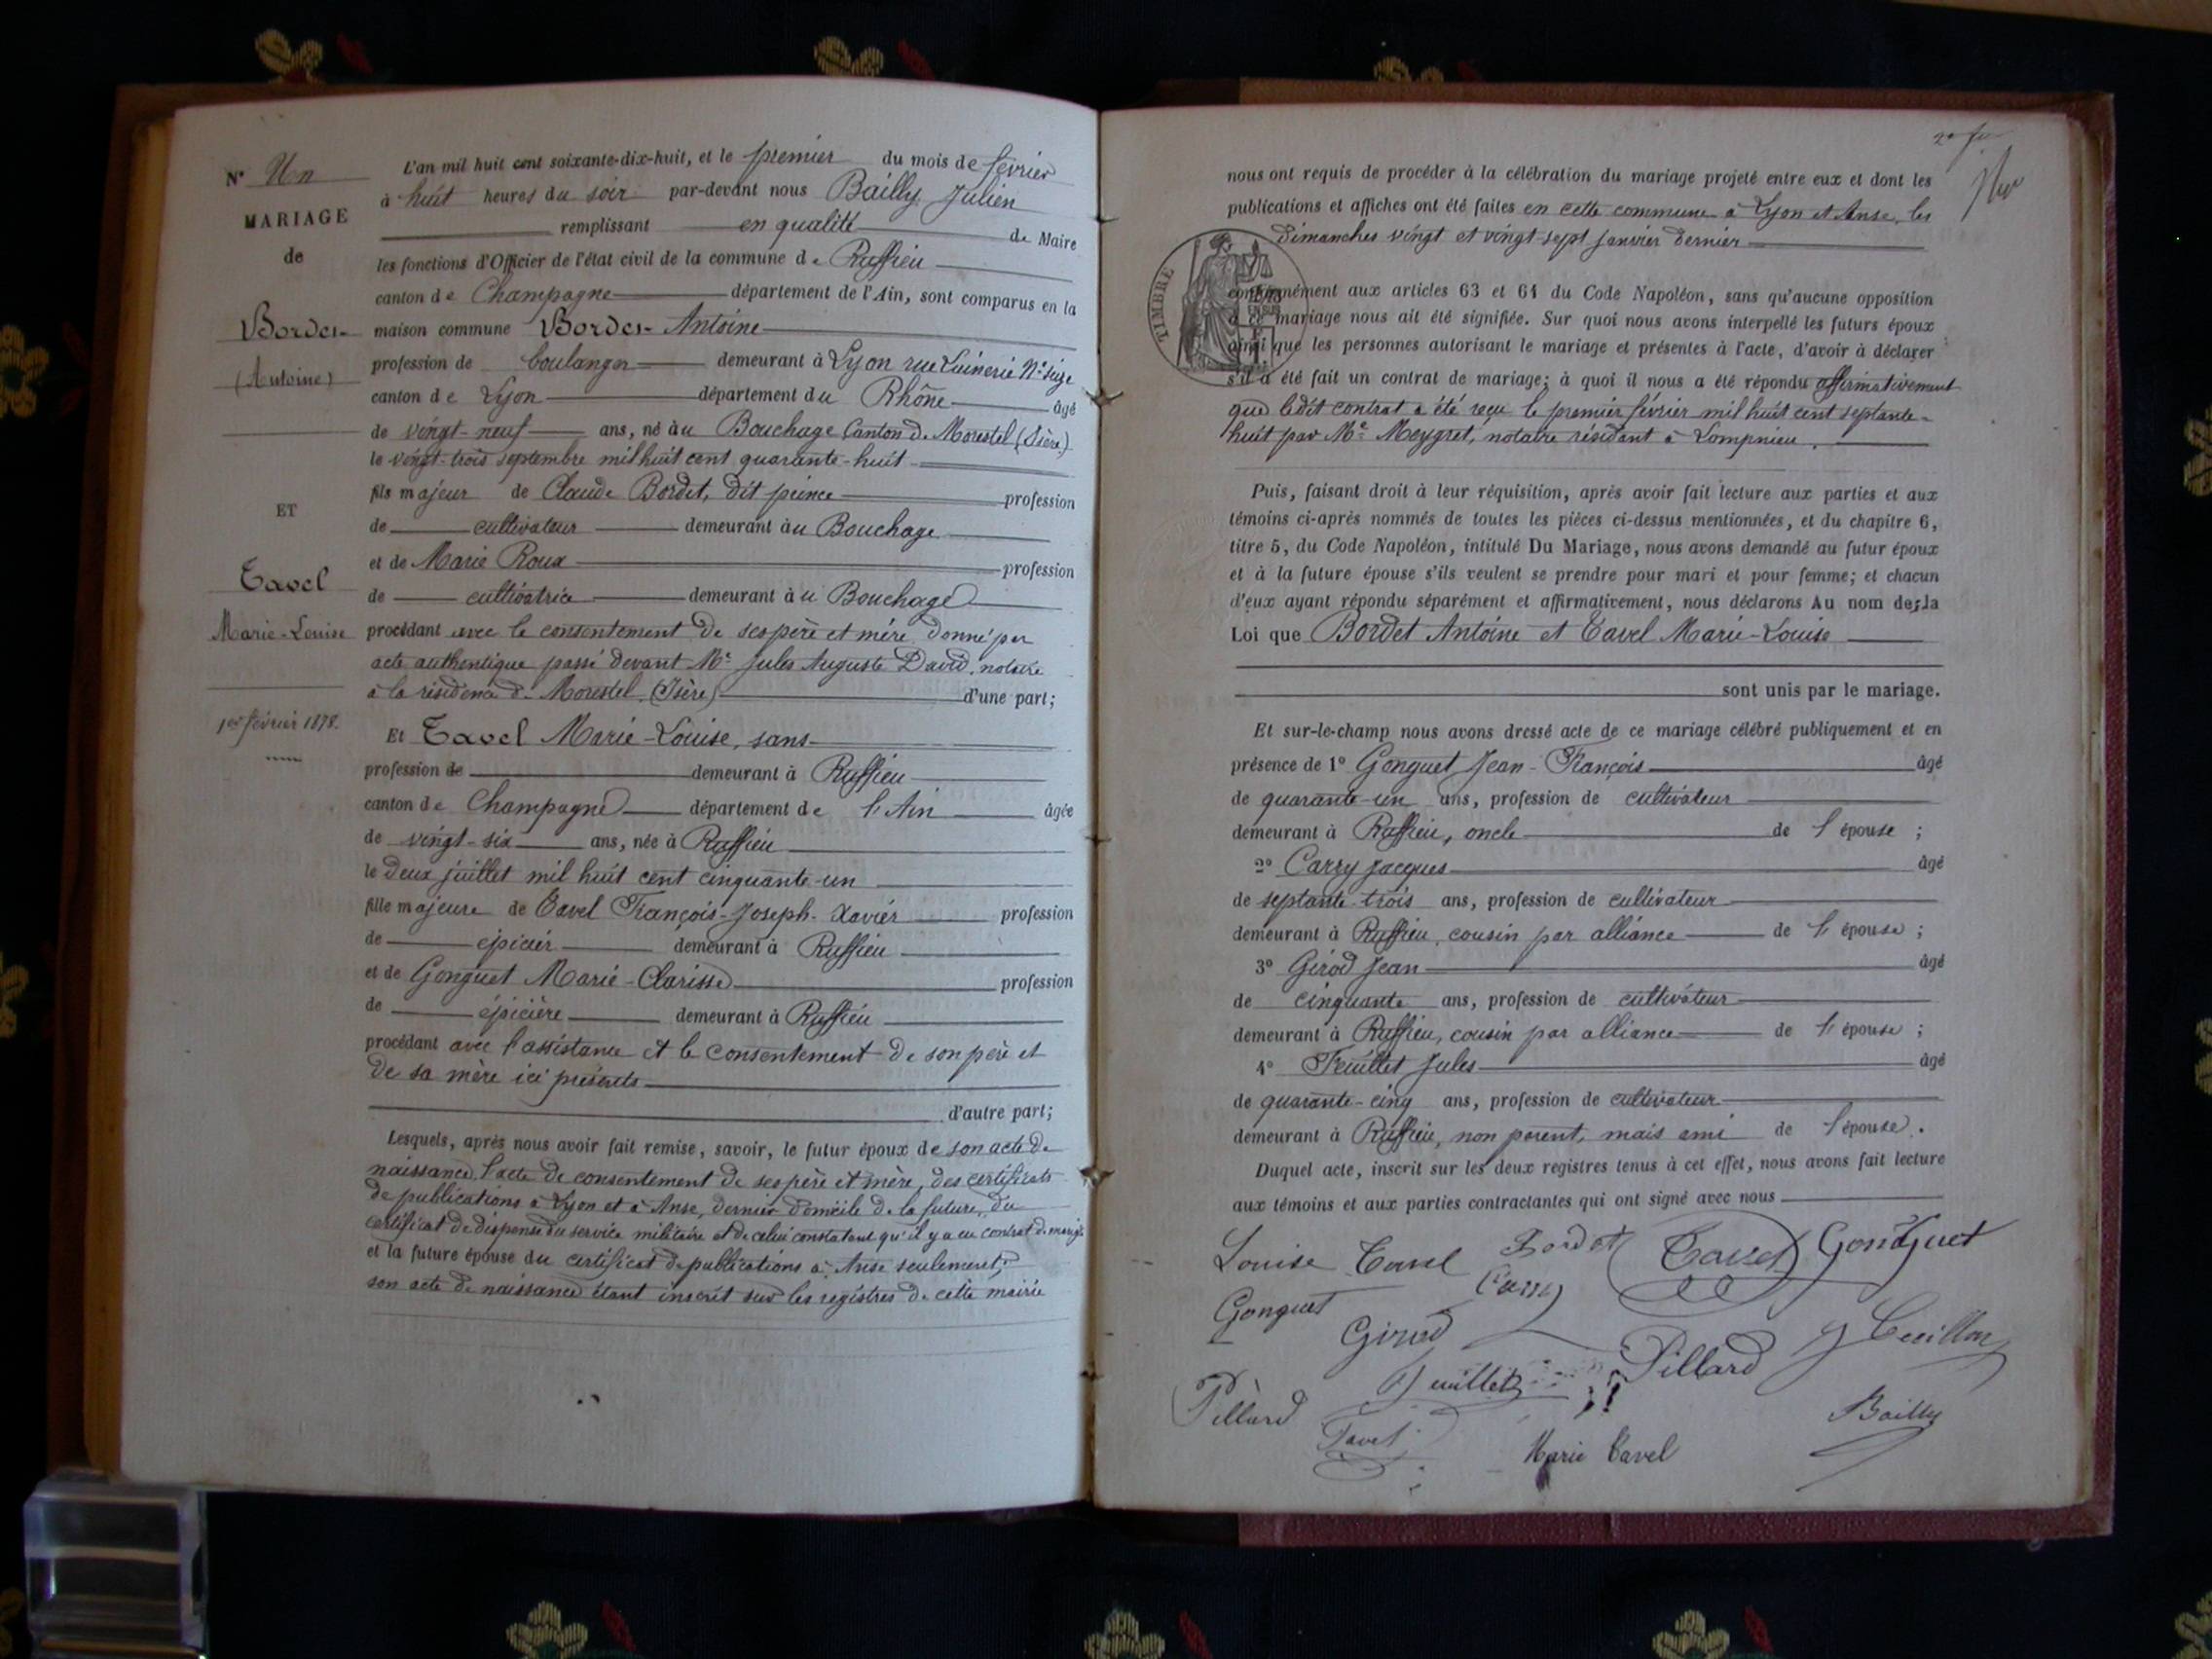 N° Un
MARIAGE
de
Bordet
(Antoine)
ET
Tavel
Marie-Louise
1er février 1878.
L'an mil huit cent soixante-dix-huit, et le premier du mois de février
à huit heures du soir par-devant nous Bailly Julien
remplissant en qualité de Maire
les fonctions d'Officier de l'état civil de la commune de Ruffieu
canton de Champagne département de l'Ain, sont comparus en la
maison commune Bordet Antoine
profession de boulanger demeurant à Lyon rue Luinerie N° seize
canton de Lyon département du Rhône âgé
de vingt-neuf ans, né àu Bouchage Canton de Morestel (Isère)
le vingt-trois septembre mil huit cent quarante-huit
fils majeur de Claude Bordet, dit prince profession
de cultivateur demeurant àu Bouchage
et de Marie Roux profession
de cultivatrice demeurant àu Bouchage
procédant avec le consentement de ses père et mère donné par
acte authentique passé devant Me Jules Auguste David, notaire
à la résidence de Morestel (Isère) d'une part;
Et Tavel Marie-Louise, sans
profession de demeurant à Ruffieu
canton de Champagne département de l'Ain âgée
de vingt-six ans, née à Ruffieu
le deux juillet mil huit cent cinquante-un
fille majeure de Tavel François-Joseph-Xavier profession
de épicier demeurant à Ruffieu
et de Gonguet Marie-Clarisse profession
de épicière demeurant à Ruffieu
procédant avec l'assistance et le consentement de son père et
de sa mère ici présents
d'autre part;
Lesquels, après nous avoir fait remise, savoir, le futur époux de son acte de
naissance, l'acte de consentement de ses père et mère, des certificats
de publications à Lyon et à Anse, dernier domicile de la future, du
certificat de dispense du service militaire et de celui constatant qu'il y a eu contrat de mariage
et la future épouse du certificat de publications à Anse seulement,
son acte de naissance étant inscrit sur les registres de cette mairie
nous ont requis de procéder à la célébration du mariage projeté entre eux et dont les
publications et affiches ont été faites en cette commune à Lyon et Anse, les
dimanches vingt et vingt sept janvier dernier
TIMBRE
conformément aux articles 63 et 64 du Code Napoléon, sans qu'aucune opposition
à ce mariage nous ait été signifiée. Sur quoi nous avons interpellé les futurs époux
ainsi que les personnes autorisant le mariage et présentes à l'acte, d'avoir à déclarer
s'il a été fait un contrat de mariage; à quoi il nous a été répondu affirmativement
que ledit contrat a été reçu le premier février mil huit cent septante-
huit par Me Meygret, notaire résidant à Lompnieu.
Puis, faisant droit à leur réquisition, après avoir fait lecture aux parties et aux
témoins ci-après nommés de toutes les pièces ci-dessus mentionnées, et du chapitre 6,
titre 5, du Code Napoléon, intitulé Du Mariage, nous avons demandé au futur époux
et à la future épouse s'ils veulent se prendre pour mari et pour femme; et chacun
d'eux ayant répondu séparément et affirmativement, nous déclarons Au nom de la
Loi que Bordet Antoine et Tavel Marie-Louise
sont unis par le mariage.
Et sur-le-champ nous avons dressé acte de ce mariage célébré publiquement et en
présence de 1° Gonguet Jean-François âgé
de quarante-un ans, profession de cultivateur
demeurant à Ruffieu, oncle de l'épouse;
2° Carry Jacques âgé
de septante-trois ans, profession de cultivateur
demeurant à Ruffieu, cousin par alliance de l'épouse;
3° Girod Jean âgé
de cinquante ans, profession de cultivateur
demeurant à Ruffieu, cousin par alliance de l'épouse;
4° Feuillet Jules âgé
de quarante-cinq ans, profession de cultivateur
demeurant à Ruffieu, non parent, mais ami de l'épouse.
Duquel acte, inscrit sur les deux registres tenus à cet effet, nous avons fait lecture
aux témoins et aux parties contractantes qui ont signé avec nous
Louise Tavel Bordet Tavel Gonguet
Carry
Gonguet Girod
Feuillet Pillard
Pillard
Tavel Marie Tavel Bailly